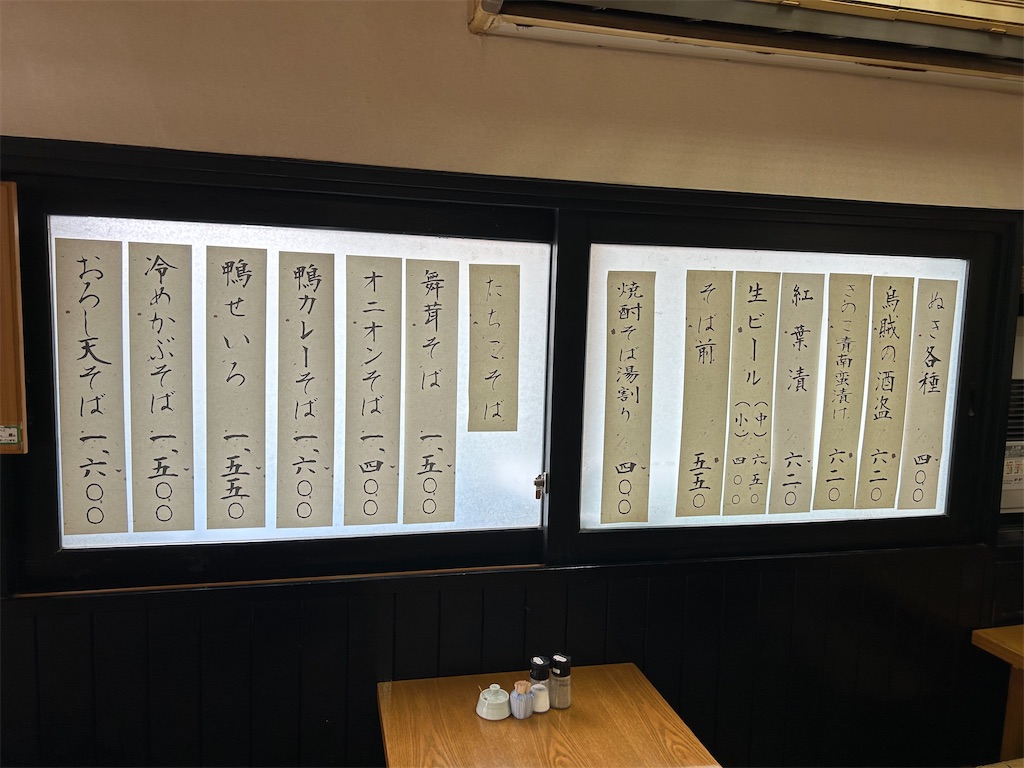 ぬき各種 四〇〇
烏賊の酒盗 六二〇
きのこ青南蛮漬け 六二〇
紅葉漬 六二〇
生ビール(中)六五〇
(小)四〇〇
そば前 五五〇
焼酎そば湯割り 四〇〇
たちこそば
舞茸そば 一、五〇〇
オニオンそば 一、四〇〇
鴨カレーそば 一、六〇〇
鴨せいろ 一、五五〇
冷めかぶそば 一、五〇〇
おろし天そば 一、六〇〇